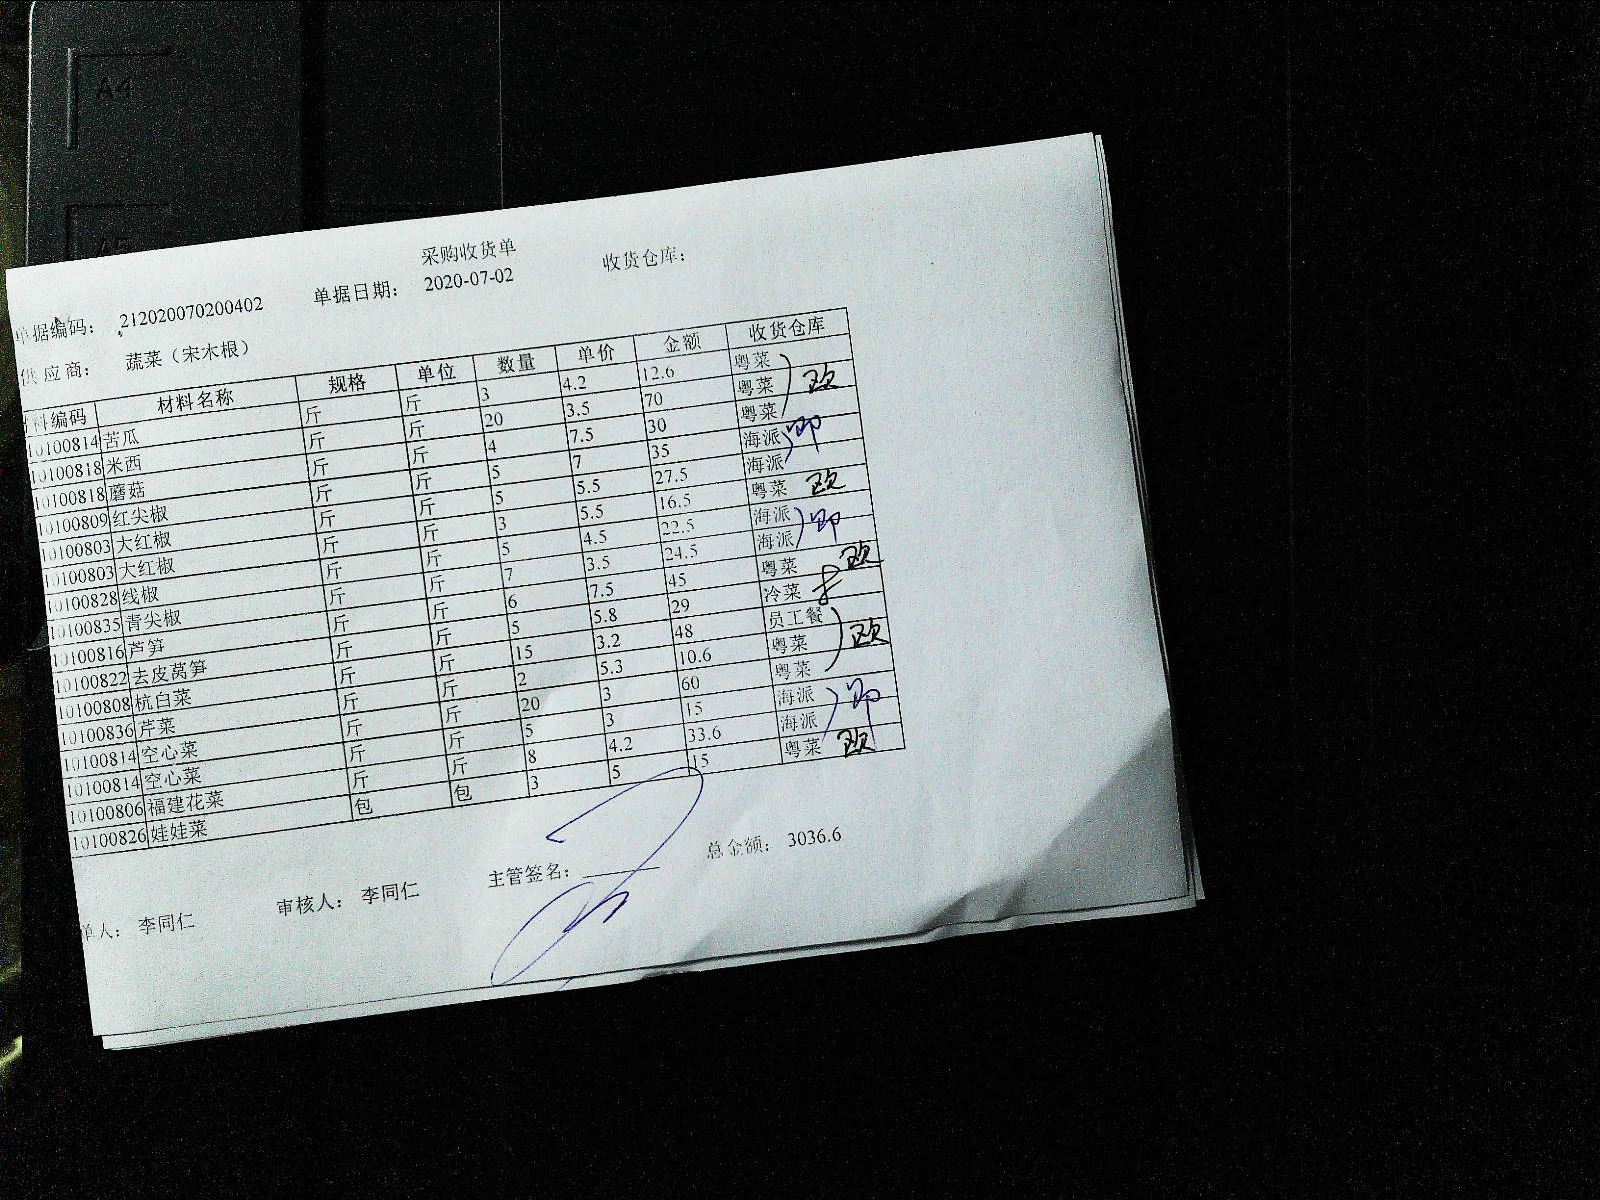 A4
A5
采购收货单
单据编码: 212020070200402 单据日期: 2020-07-02 收货仓库:
供应商: 蔬菜（宋木根）
料编码 材料名称 规格 单位 数量 单价 金额 收货仓库
10100814 苦瓜 斤 斤 3 4.2 12.6 粤菜
10100818 米西 斤 斤 20 3.5 70 粤菜 欧
10100818 蘑菇 斤 斤 4 7.5 30 粤菜
10100809 红尖椒 斤 斤 5 7 35 海派
10100803 大红椒 斤 斤 5 5.5 27.5 海派
10100803 大红椒 斤 斤 3 5.5 16.5 粤菜 欧
10100828 线椒 斤 斤 5 4.5 22.5 海派
10100835 青尖椒 斤 斤 7 3.5 24.5 海派
10100816 芦笋 斤 斤 6 7.5 45 粤菜 欧
10100822 去皮莴笋 斤 斤 5 5.8 29 冷菜
10100808 杭白菜 斤 斤 15 3.2 48 员工餐
10100836 芹菜 斤 斤 2 5.3 10.6 粤菜 欧
10100814 空心菜 斤 斤 20 3 60 粤菜
10100814 空心菜 斤 斤 5 3 15 海派
10100806 福建花菜 斤 斤 8 4.2 33.6 海派
10100826 娃娃菜 包 包 3 5 15 粤菜 欧
单人: 李同仁 审核人: 李同仁 主管签名: 总金额: 3036.6